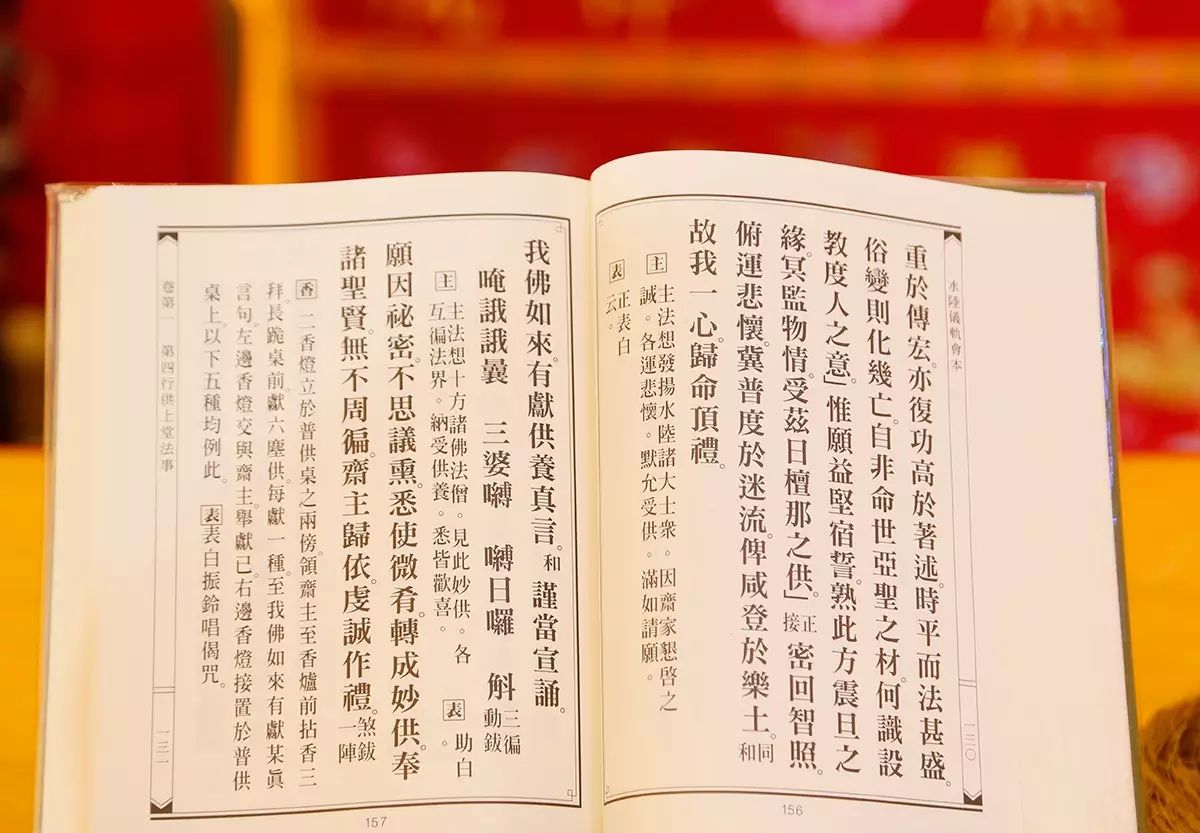 水陸儀軌會本
一三〇
重於傳宏。亦復功高於著述。時平而法甚盛。
俗變則化幾亡。自非命世亞聖之材。何識設
教度人之意」惟願益堅宿誓。熟此方震旦之
緣。冥監物情。受茲日檀那之供」正接密回智照。
俯運悲懷。冀普度於迷流。俾咸登於樂土。同和
故我一心。歸命頂禮。
主 主法想發揚水陸諸大士眾。因齋家懇啓之
誠。各運悲懷。默允受供。滿如請願。
表 正表白
云。
156
我佛如來。有獻供養真言。和 謹當宣誦。
唵誐誐曩 三婆嚩 嚩日囉 斛 三徧動鈸
主 主法想十方諸佛法僧。見此妙供。各
互徧法界。納受供養。悉皆歡喜。 表 助白。
願因祕密。不思議熏。悉使微肴。轉成妙供。奉
諸聖賢。無不周徧。齋主歸依。虔誠作禮。煞鈸一陣
香 二香燈立於普供桌之兩傍。領齋主至香爐前拈香三
拜。長跪桌前。獻六塵供。每獻一種至我佛如來有獻某眞
言句。左邊香燈交與齋主。舉獻己。右邊香燈接置於普供
桌上。以下五種均例此。 表 表白振鈴唱偈咒。
卷第一 第四行供上堂法事
一三一
157